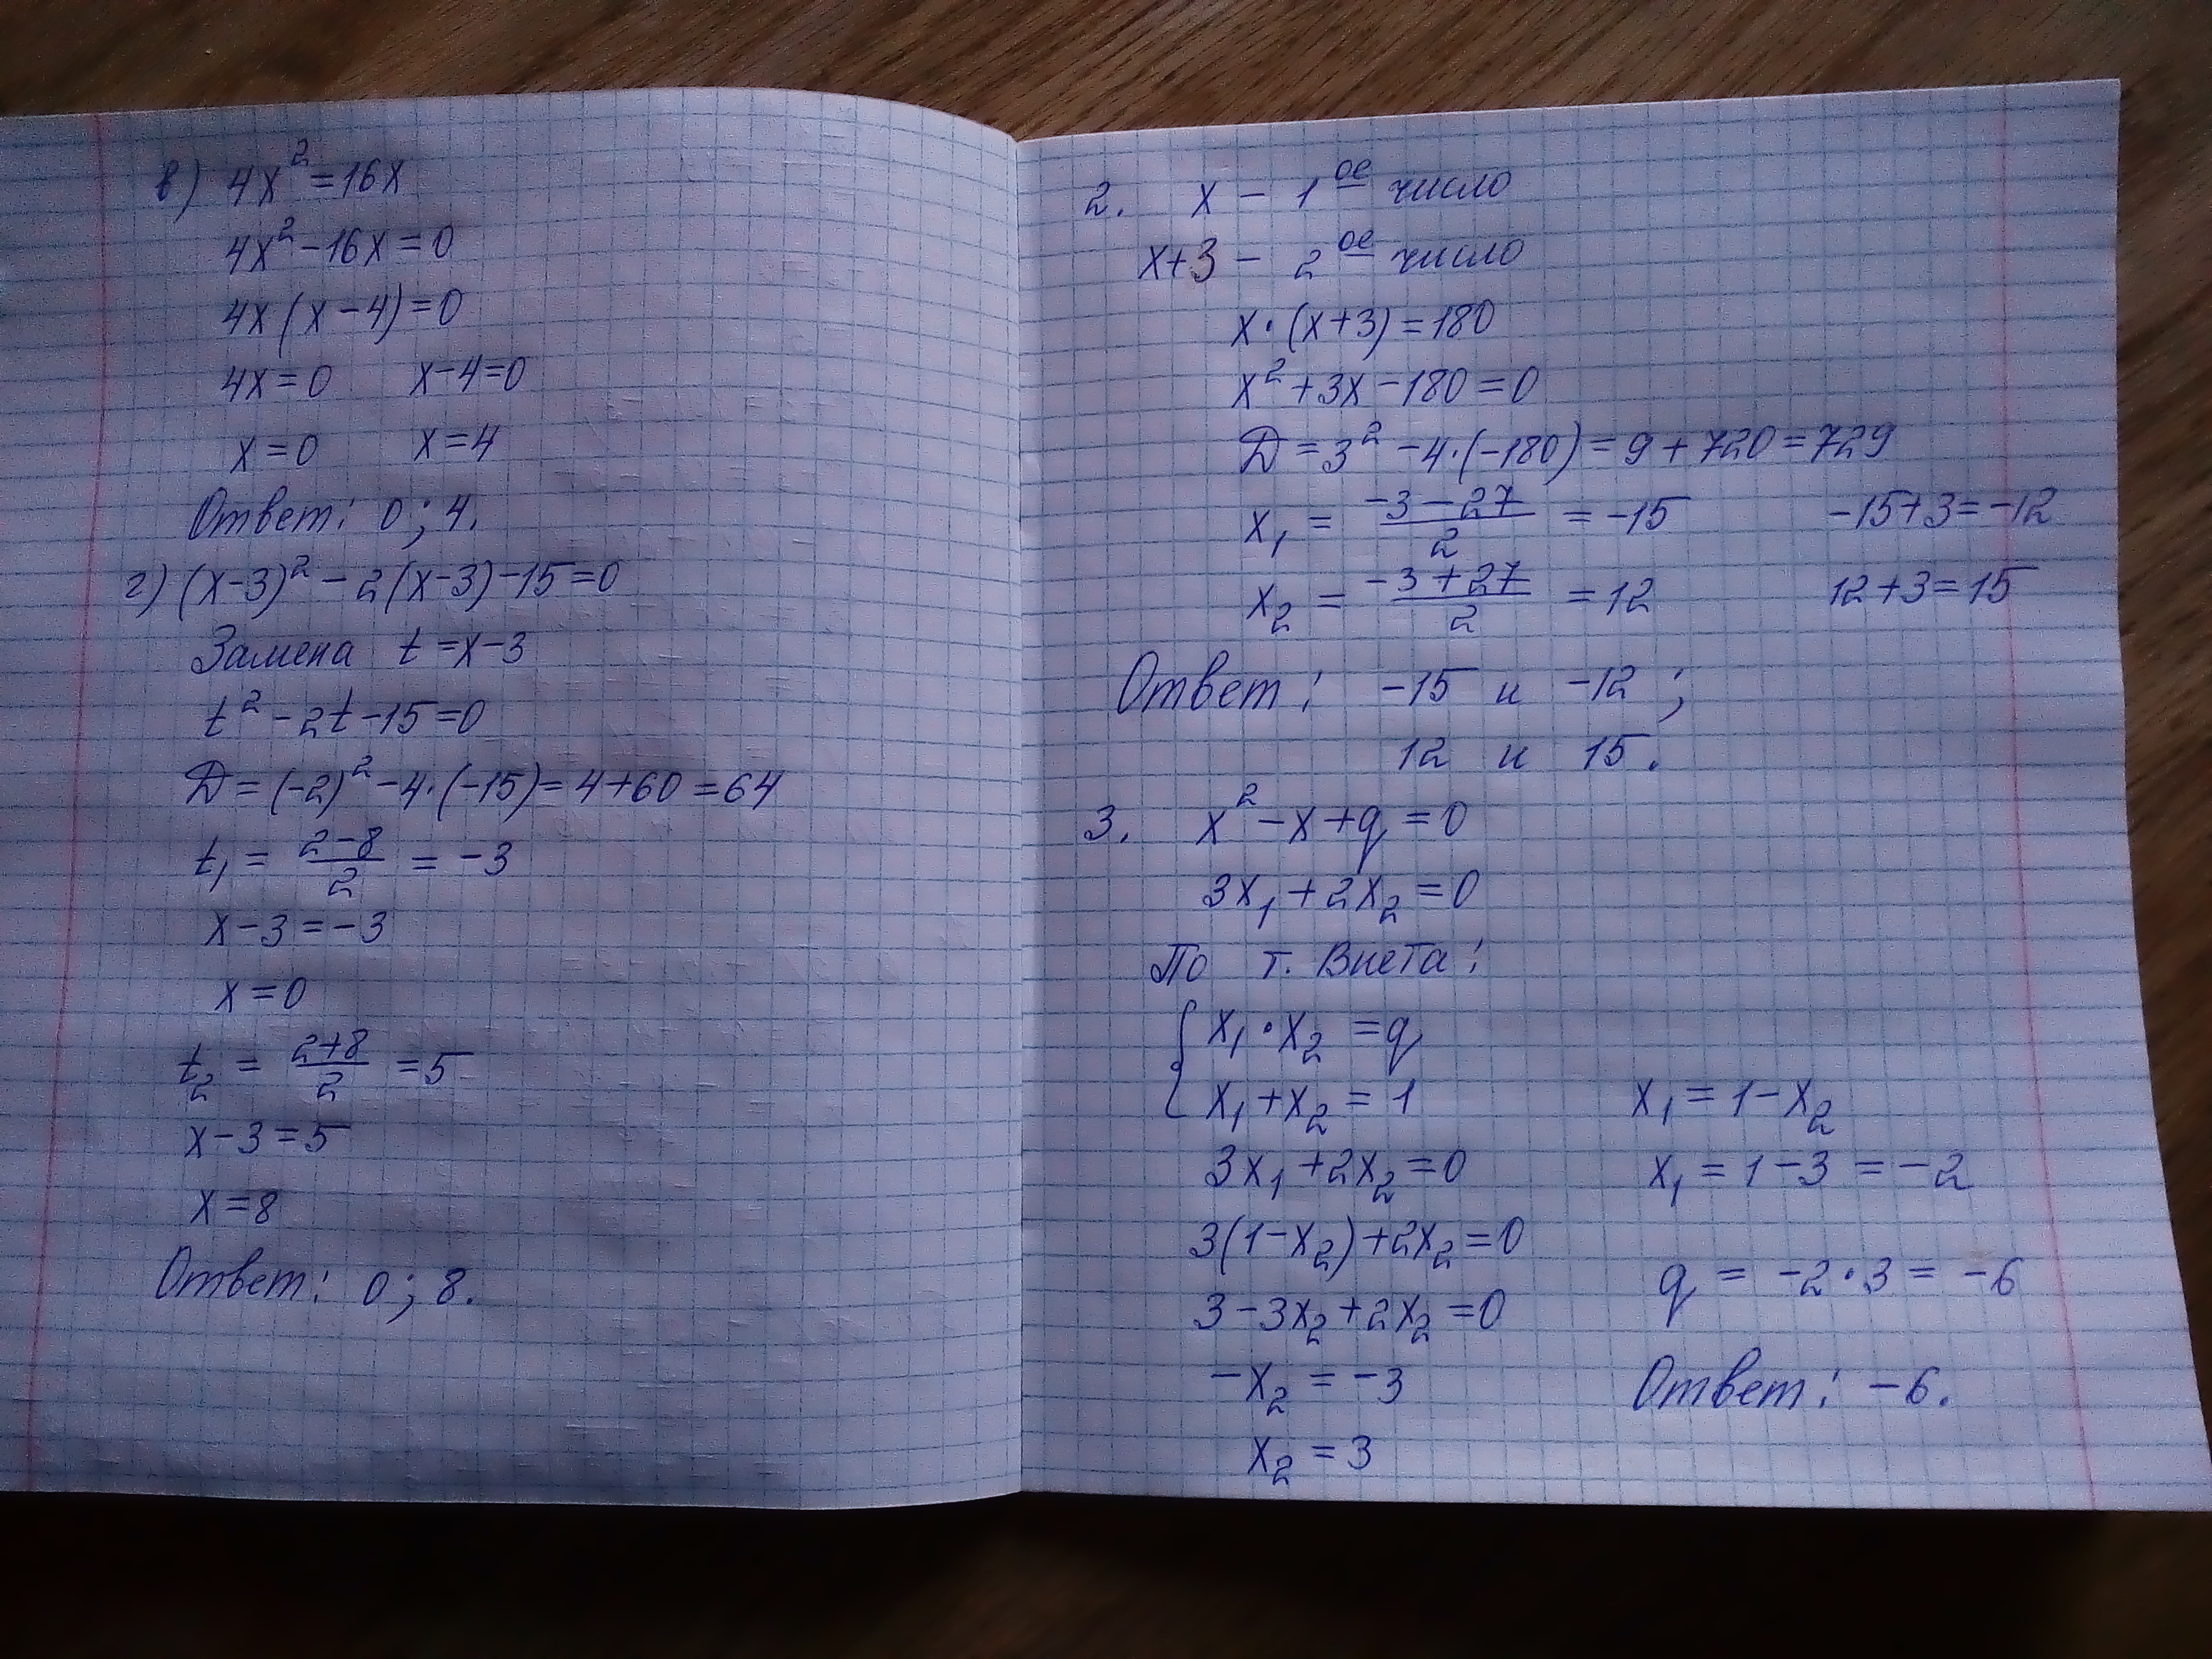 в) 4x² = 16x
4x² - 16x = 0
4x(x - 4) = 0
4x = 0 x - 4 = 0
x = 0 x = 4
Ответ: 0; 4.
г) (x-3)² - 2(x-3) - 15 = 0
Замена t = x-3
t² - 2t - 15 = 0
D = (-2)² - 4·(-15) = 4 + 60 = 64
t₁ = (2-8)/2 = -3
x - 3 = -3
x = 0
t₂ = (2+8)/2 = 5
x - 3 = 5
x = 8
Ответ: 0; 8.
2. x - 1ое число
x+3 - 2ое число
x·(x+3) = 180
x² + 3x - 180 = 0
D = 3² - 4·(-180) = 9 + 720 = 729
x₁ = (-3-27)/2 = -15 -15+3 = -12
x₂ = (-3+27)/2 = 12 12+3 = 15
Ответ: -15 и -12;
12 и 15.
3. x² - x + q = 0
3x₁ + 2x₂ = 0
По т. Виета:
{ x₁·x₂ = q
x₁ + x₂ = 1 x₁ = 1 - x₂
3x₁ + 2x₂ = 0 x₁ = 1 - 3 = -2
3(1-x₂) + 2x₂ = 0
3 - 3x₂ + 2x₂ = 0 q = -2·3 = -6
-x₂ = -3 Ответ: -6.
x₂ = 3